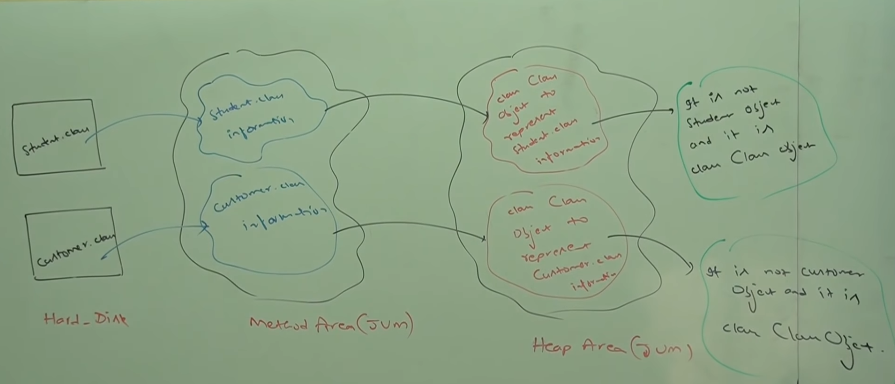 Student.class
Customer.class
Hard_Disk
Student.class
information
Customer.class
information
Method Area(JVM)
class Class
Object to
represent
Student.class
information
class Class
Object to
represent
Customer.class
information
Heap Area(JVM)
It is not
Student Object
and it is
class Class Object
It is not customer
Object and it is
class Class Object.